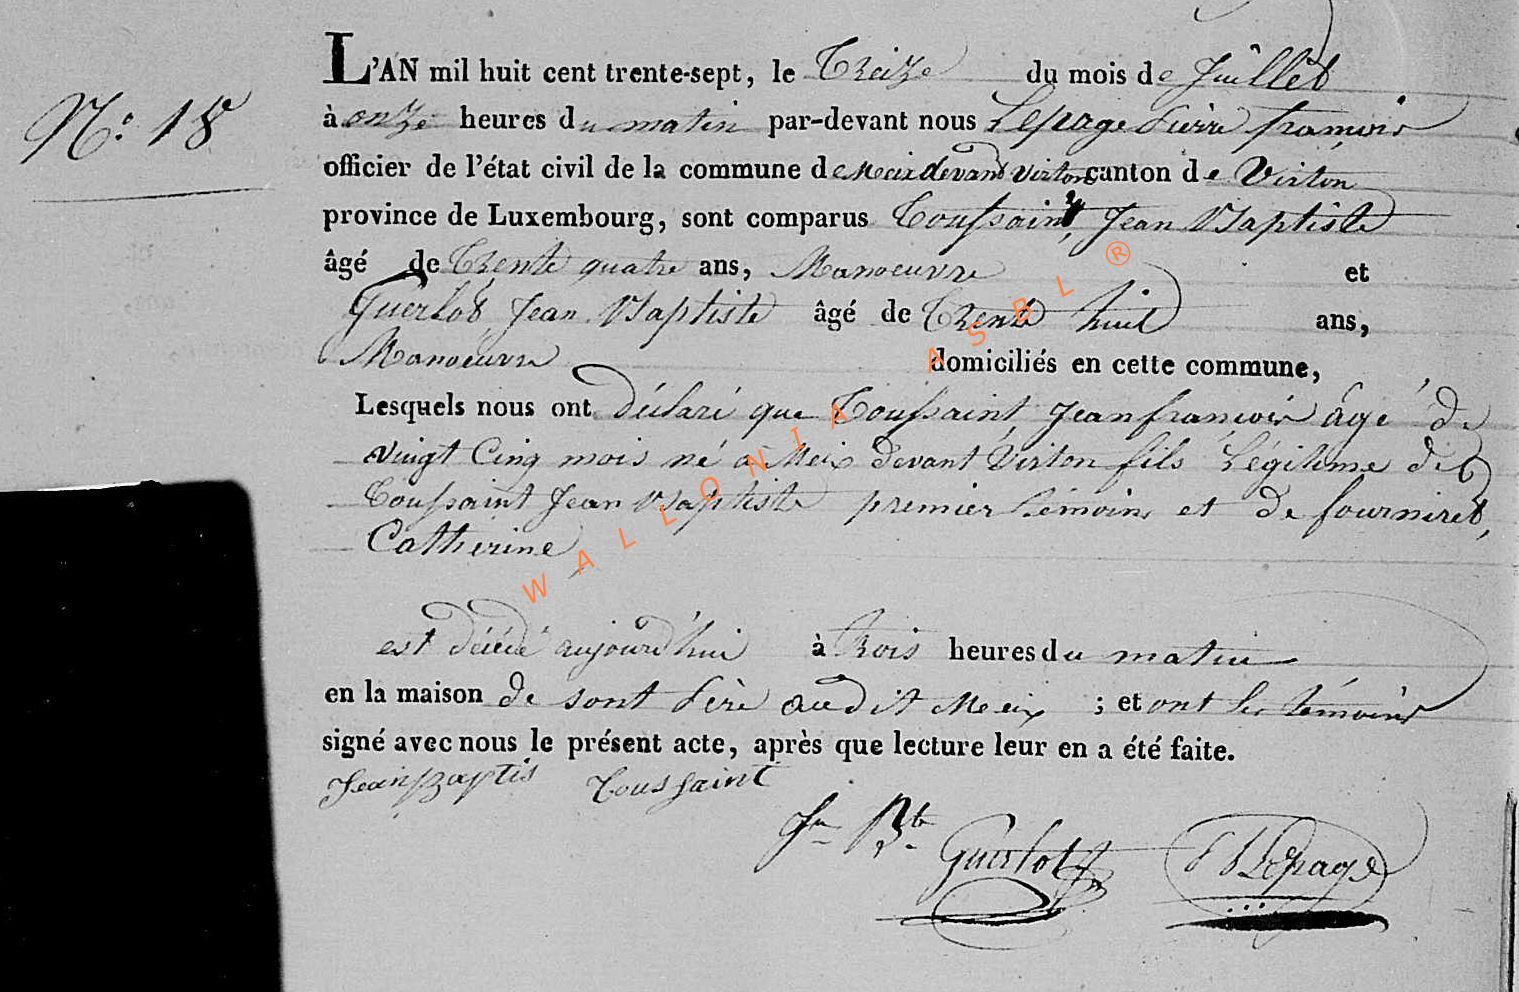 L'AN mil huit cent trente-sept, le Treize du mois de Juillet
N.º 18
à onze heures du matin par-devant nous Lepage Pierre françois
officier de l'état civil de la commune de Meix devant Virton canton de Virton
province de Luxembourg, sont comparus Toussaint, Jean Baptiste
âgé de Trente quatre ans, Manoeuvre et
Guerlot Jean Baptiste âgé de Trente huit ans,
Manoeuvre domiciliés en cette commune,
Lesquels nous ont déclaré que Toussaint, Jean françois âgé de
vingt Cinq mois né à Meix devant Virton fils Légitime de
Toussaint Jean Baptiste premier témoins et de fourniret,
Catherine
est décédé aujourd'hui à trois heures du matin
en la maison de sont Père audit Meix ; et ont les témoins
signé avec nous le présent acte, après que lecture leur en a été faite.
Jean Baptis Toussaint
Jn Bte
Guerlot PF Lepage
WALLONIA ASBL ®